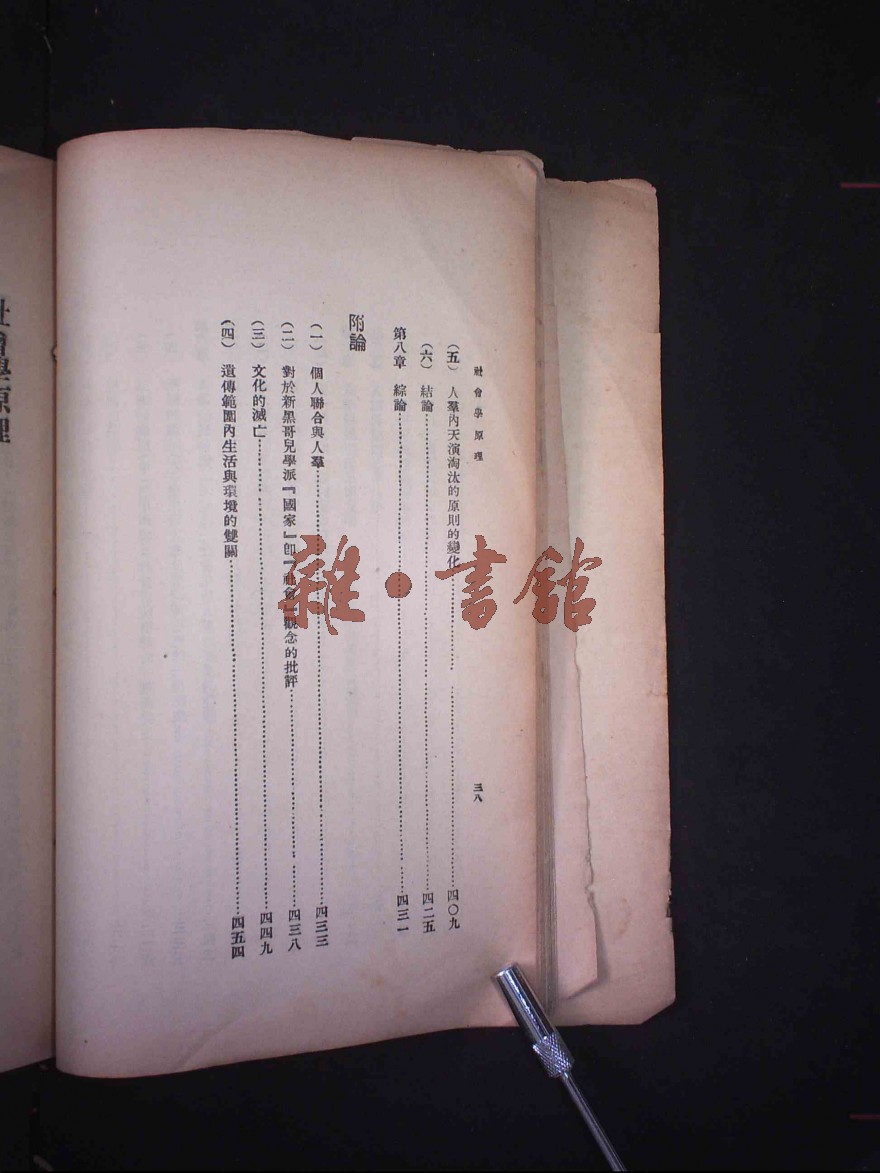 社會學原理
三八
(五) 人羣內天演淘汰的原則的變化……四〇九
(六) 結論……四二五
第八章 綜論……四三一
附論
(一) 個人聯合與人羣……四三三
(二) 對於新黑哥兒學派『國家』即『社會』觀念的批評……四三八
(三) 文化的滅亡……四四九
(四) 遺傳範圍內生活與環境的雙關……四五四
社會學原理
雜·書館